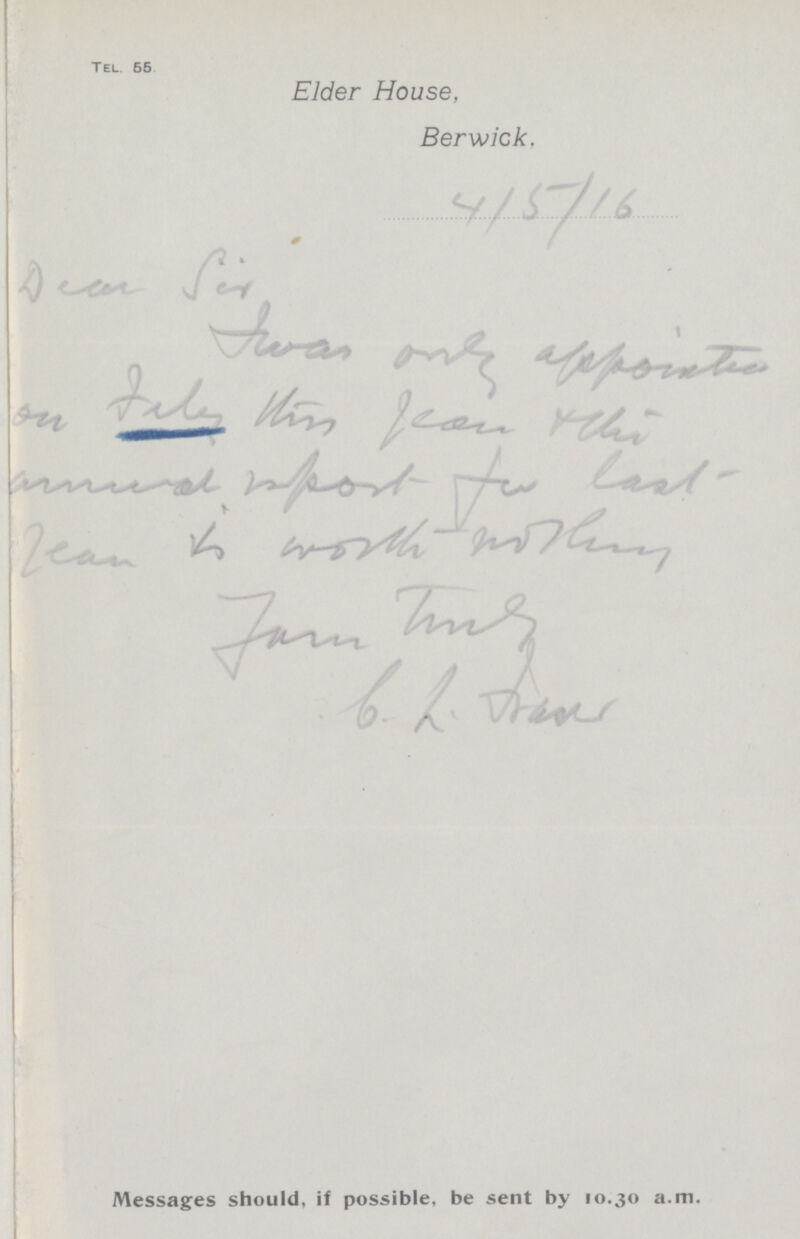 TEL. 55.
Elder House,
Berwick.
4/5/16
Dear Sir
I was only appointed
on Feby this year & this
annual report for last
year is worth nothing
Yours Truly
C. L. Fraser
Messages should, if possible, be sent by 10.30 a.m.